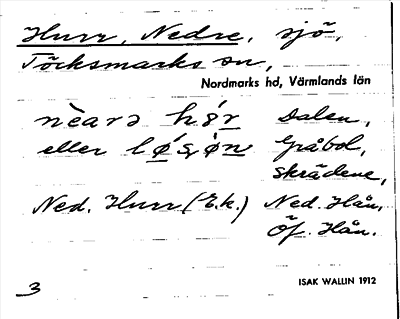 Hurr, Nedre, sjö,
Töcksmarks sn,
Nordmarks hd, Värmlands län
nèarə Dalen,
eller Gråbol,
Skrädene,
Ned. Hurr (E.k.) Ned. Hån,
Öf. Hån.
ISAK WALLIN 1912
3